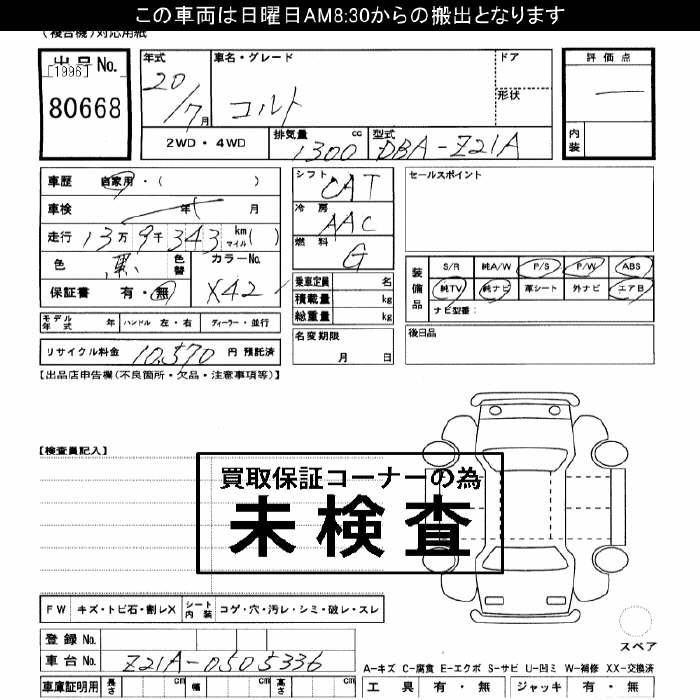 この車両は日曜日AM8:30からの搬出となります
(複合機)対応用紙
出品No.
[1996]
80668
年式
20/7月
車名・グレード
コルト
ドア
形状
評価点
—
内装
2WD・4WD
排気量 cc
1300
型式
DBA-Z21A
車歴 自家用・( )
車検 年 月
走行 13万 9千 343 km マイル ( )
色 黒 色替 カラーNo.
X42
保証書 有・無
モデル年式 年 ハンドル 左・右 ディーラー・並行
リサイクル料金 10,570 円 預託済
シフト
CAT
冷房
AAC
燃料
G
乗車定員 名
積載量 kg
総重量 kg
名変期限
月 日
セールスポイント
装備品
S/R 純A/W P/S P/W ABS
純TV 純ナビ 革シート 外ナビ エアB
ナビ型番:
後日品
【出品店申告欄(不良箇所・欠品・注意事項等)】
【検査員記入】
買取保証コーナーの為
未検査
FW キズ・トビ石・割レX シート内装 コゲ・穴・汚レ・シミ・破レ・スレ
登録No.
車台No. Z21A-0505336
車庫証明用 長さ cm 幅 cm 高さ cm
スペア
A-キズ C-腐食 E-エクボ S-サビ U-凹ミ W-補修 XX-交換済
工具 有・無 ジャッキ 有・無